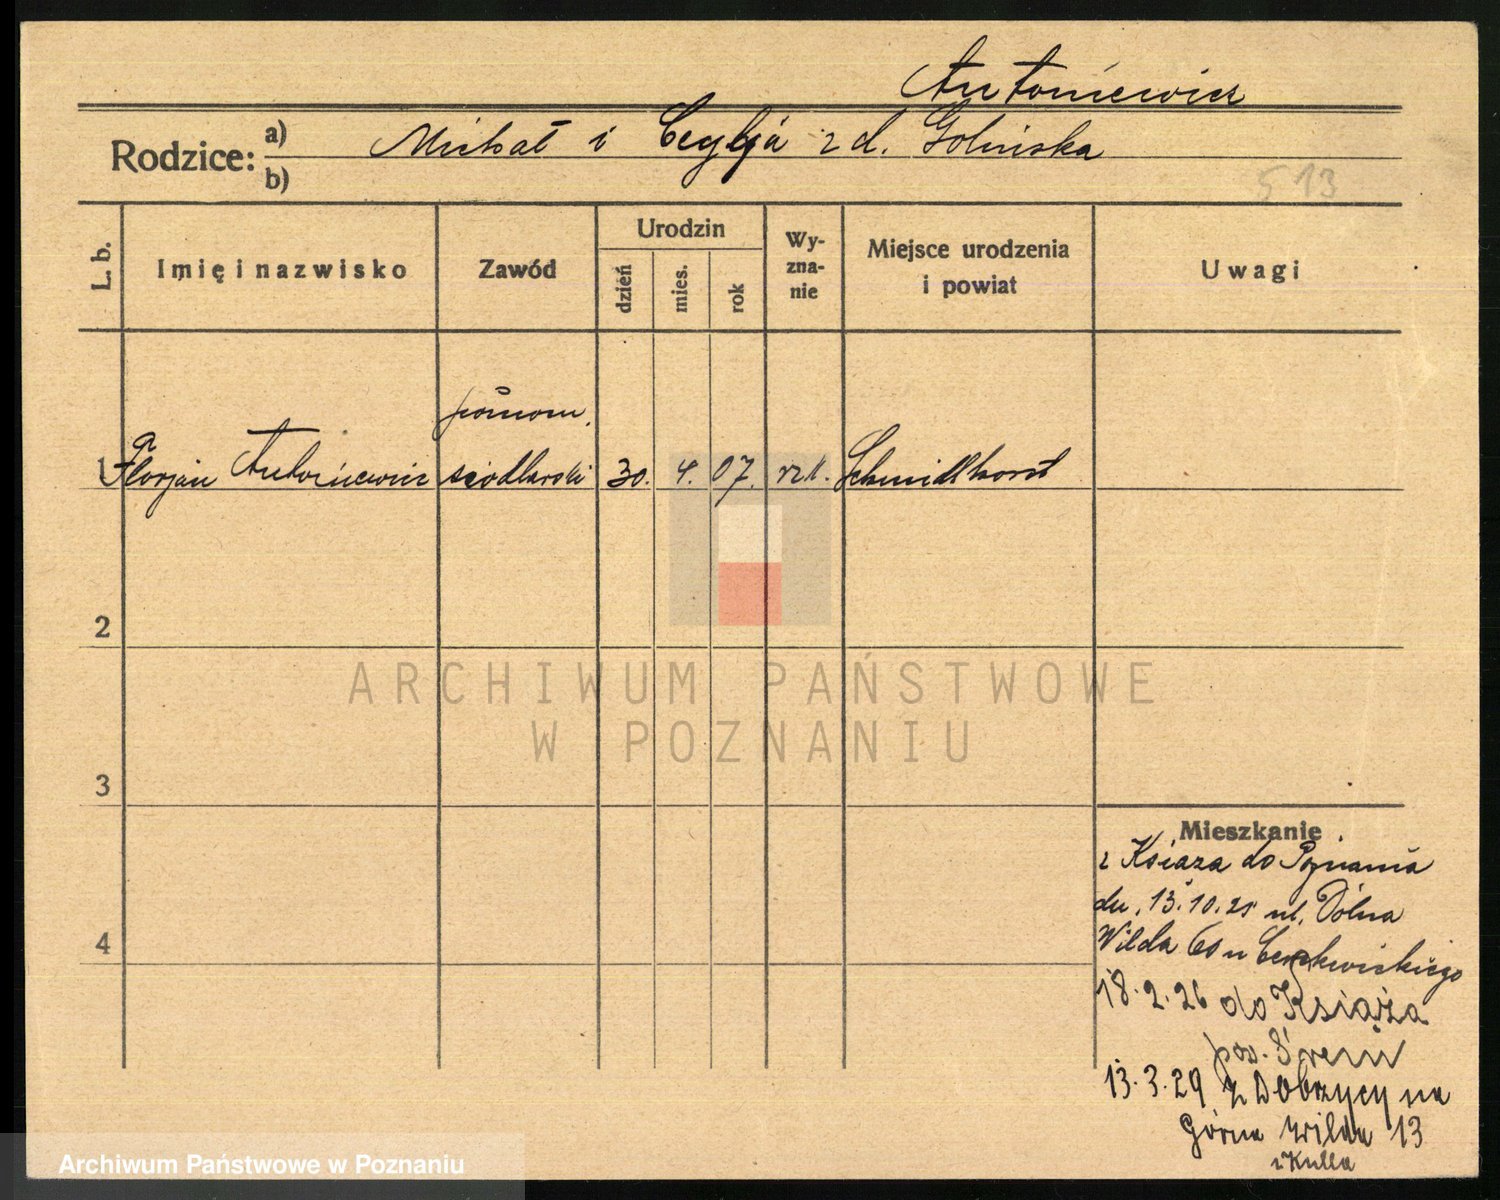 Antoniewicz
Rodzice: a) Michał i Cecylja z d. Golińska
b)
513
L. b.
Imię i nazwisko
Zawód
Urodzin
dzień
mies.
rok
Wy-
zna-
nie
Miejsce urodzenia
i powiat
Uwagi
pomocn.
1 Florjan Antoniewicz siodlarski 30. 4. 07. rzk. Schmidthorst
2
ARCHIWUM PAŃSTWOWE
W POZNANIU
3
4
Mieszkanie
z Książa do Poznania
dn. 13.10.25 ul. Dolna
Wilda 60 u
18.2.26 do Książa
pow. Śrem
13.3.29 z Dobrzycy na
Górna Wilda 13
Archiwum Państwowe w Poznaniu